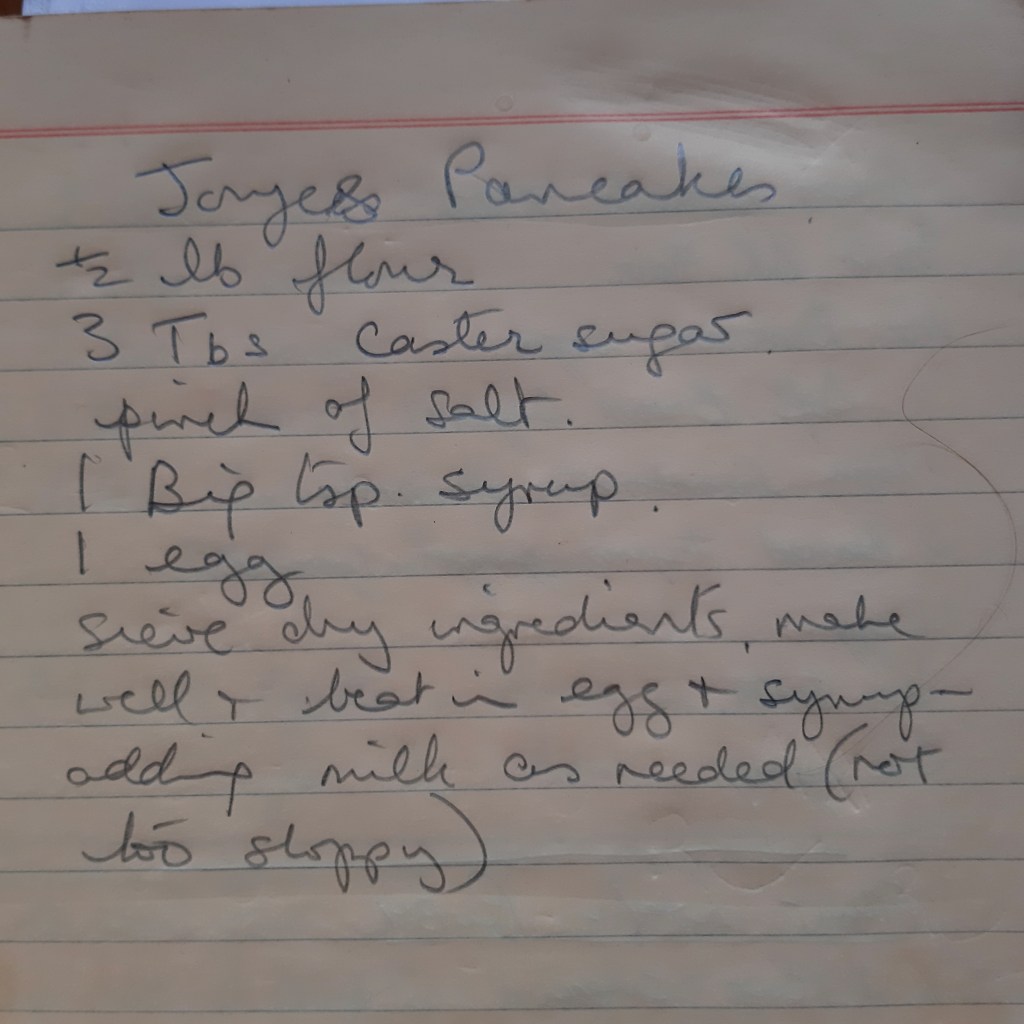 Joyces Pancakes
½ lb flour
3 Tbs caster sugar.
pinch of salt.
1 Big tsp. syrup.
1 egg
sieve dry ingredients, make
well + beat in egg + syrup -
adding milk as needed (not
too sloppy)